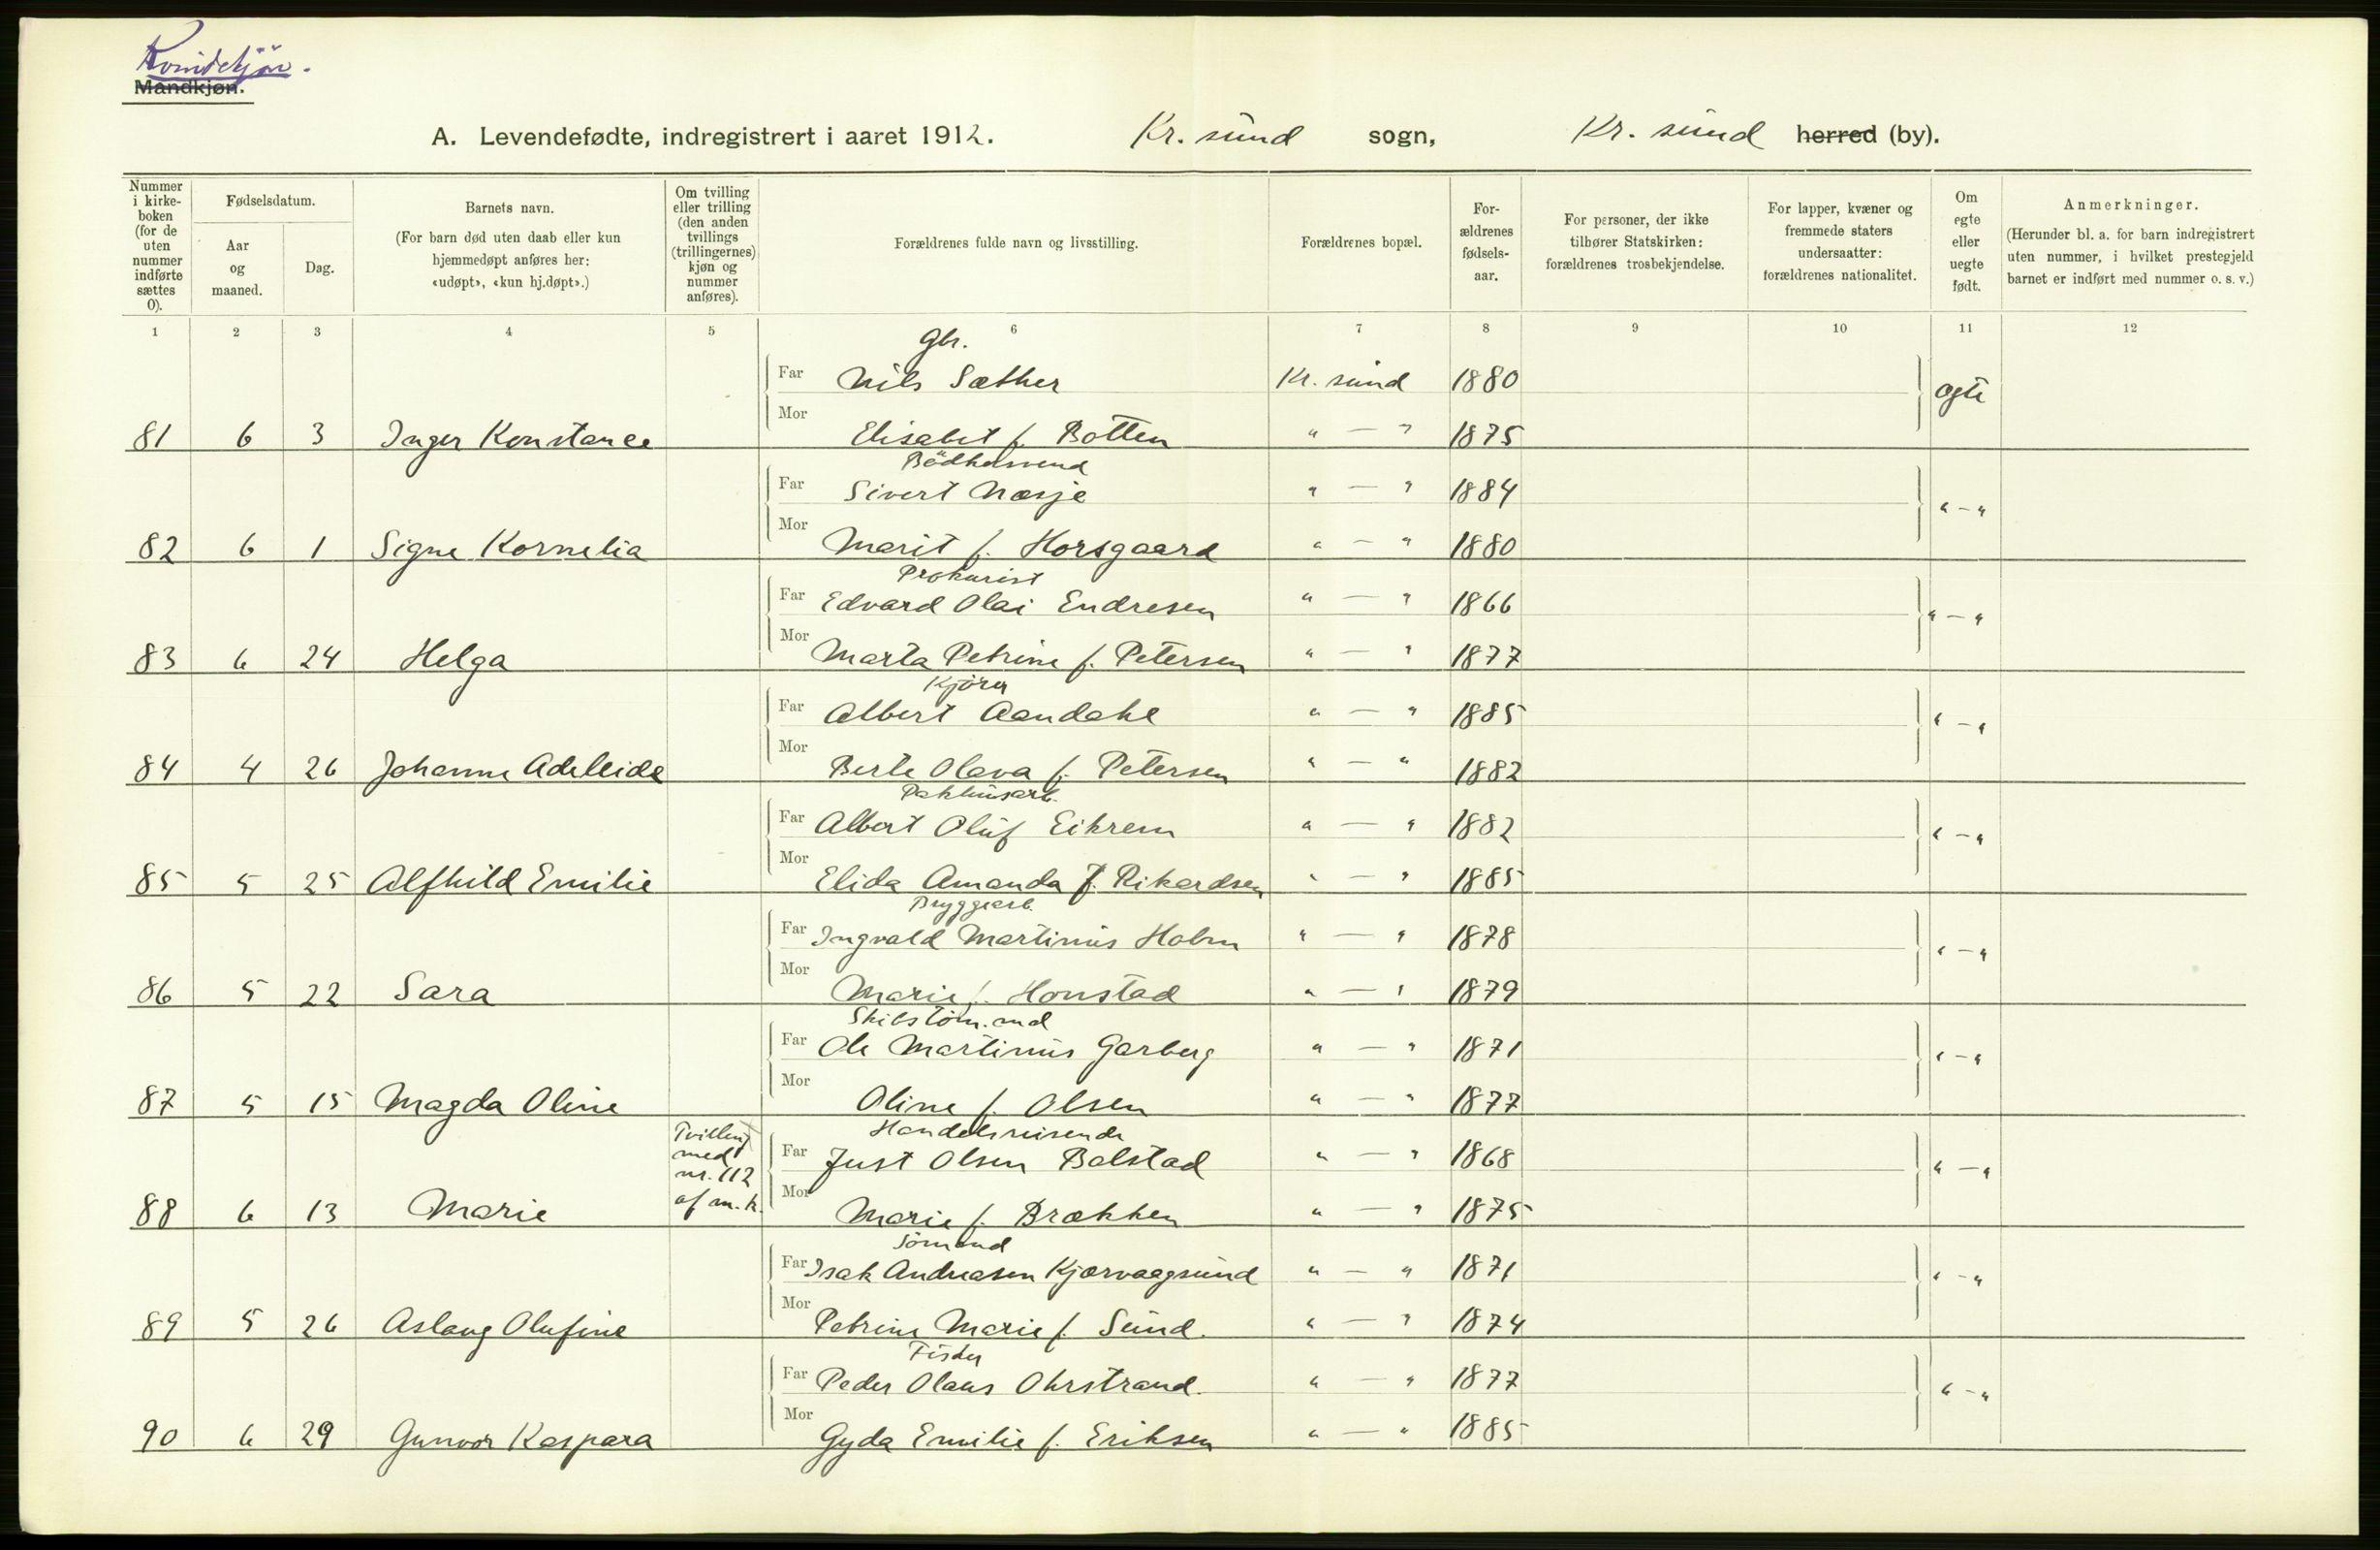 Kvindekjøn.
Mandkjøn.
A. Levendefødte, indregistrert i aaret 1912. Kr. sund sogn, Kr. sund herred (by).
Nummer i kirke-boken (for de uten nummer indførte sættes 0).
Fødselsdatum.
Aar og maaned.
Dag.
Barnets navn.
(For barn død uten daab eller kun hjemmedøpt anføres her: «udøpt», «kun hj.døpt».)
Om tvilling eller trilling (den anden tvillings (trillingernes) kjøn og nummer anføres).
Forældrenes fulde navn og livsstilling.
Forældrenes bopæl.
For-ældrenes fødsels-aar.
For personer, der ikke tilhører Statskirken: forældrenes trosbekjendelse.
For lapper, kvæner og fremmede staters undersaatter: forældrenes nationalitet.
Om egte eller uegte født.
Anmerkninger.
(Herunder bl. a. for barn indregistrert uten nummer, i hvilket prestegjeld barnet er indført med nummer o. s. v.)
1 2 3 4 5 6 7 8 9 10 11 12
Gbr.
Far Nils Sæther Kr. sund 1880 egte
81 6 3 Inger Konstance Mor Elisabet f. Botten " — " 1875
Bödkersvend
Far Sivert Næsje " — " 1884 " — "
82 6 1 Signe Kornelia Mor Marit f. Horsgaard " — " 1880
Prokurist
Far Edvard Olai Endresen " — " 1866 " — "
83 6 24 Helga Mor Marta Petrine f. Petersen " — " 1877
Kjörer
Far Albert Aandahl " — " 1885 " — "
84 4 26 Johanne Adeleide Mor Berte Olava f. Petersen " — " 1882
Pakhusarb.
Far Albert Oluf Eikrem " — " 1882 " — "
85 5 25 Alfhild Emilie Mor Elida Amanda f. Rikardsen " — " 1885
Bryggearb.
Far Ingvald Martinus Holm " — " 1878 " — "
86 5 22 Sara Mor Marie f. Honstad " — " 1879
Skibstöm.md
Far Ole Martinus Garberg " — " 1871 " — "
87 5 15 Magda Oline Mor Oline f. Olsen " — " 1877
Tvilling med nr. 112 af m.k.
Handelsreisende
Far Just Olsen Bolstad " — " 1868 " — "
88 6 13 Marie Mor Marie f. Brækken " — " 1875
Sömand
Far Isak Andreasen Kjørvaagsund " — " 1871 " — "
89 5 26 Aslaug Olufine Mor Petrine Marie f. Sund. " — " 1874
Fisker
Far Peder Olaus Ohrstrand. " — " 1877 " — "
90 6 29 Gunvor Kaspara Mor Gyda Emilie f. Eriksen " — " 1885